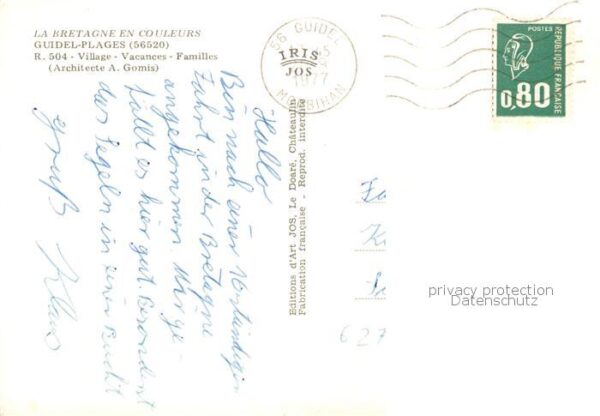 LA BRETAGNE EN COULEURS
GUIDEL-PLAGES (56520)
R. 504 - Village - Vacances - Familles
(Architecte A. Gomis)
56 GUIDEL
1977
MORBIHAN
IRIS
JOS
POSTES
RÉPUBLIQUE FRANÇAISE
0,80
Hallo
Bin nach einer 16 stündigen
Fahrt in der Bretagne
angekommen. Mir ge-
fällt es hier gut. Besonders
das Segeln in einer Bucht
Gruß Klaus
Editions d'Art JOS, Le Doaré, Châteaulin
Fabrication française - Reprod. interdite
627
privacy protection
Datenschutz